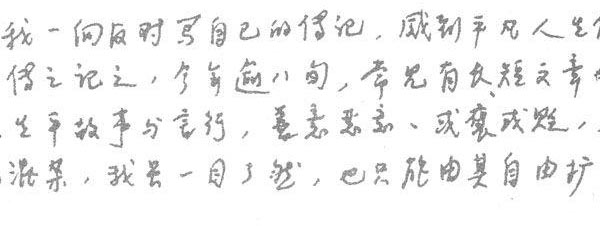 我一向反对写自己的传记，感到平凡人生
传之记之，今年逾八旬，常见有长短文章
生平故事与言行，善意恶意、或褒或贬，
混杂，我虽一目了然，也只能由其自由扩